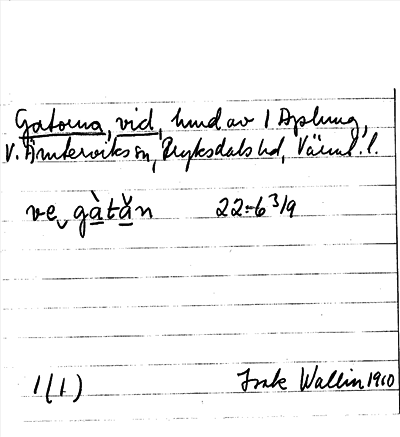 Gatorna, vid, hmd av 1 Aplung,
V. Ämterviks sn, Fryksdals hd, Värml. l.
ve gàtăn 22-6 3/9
1(1) Isak Wallin 1910